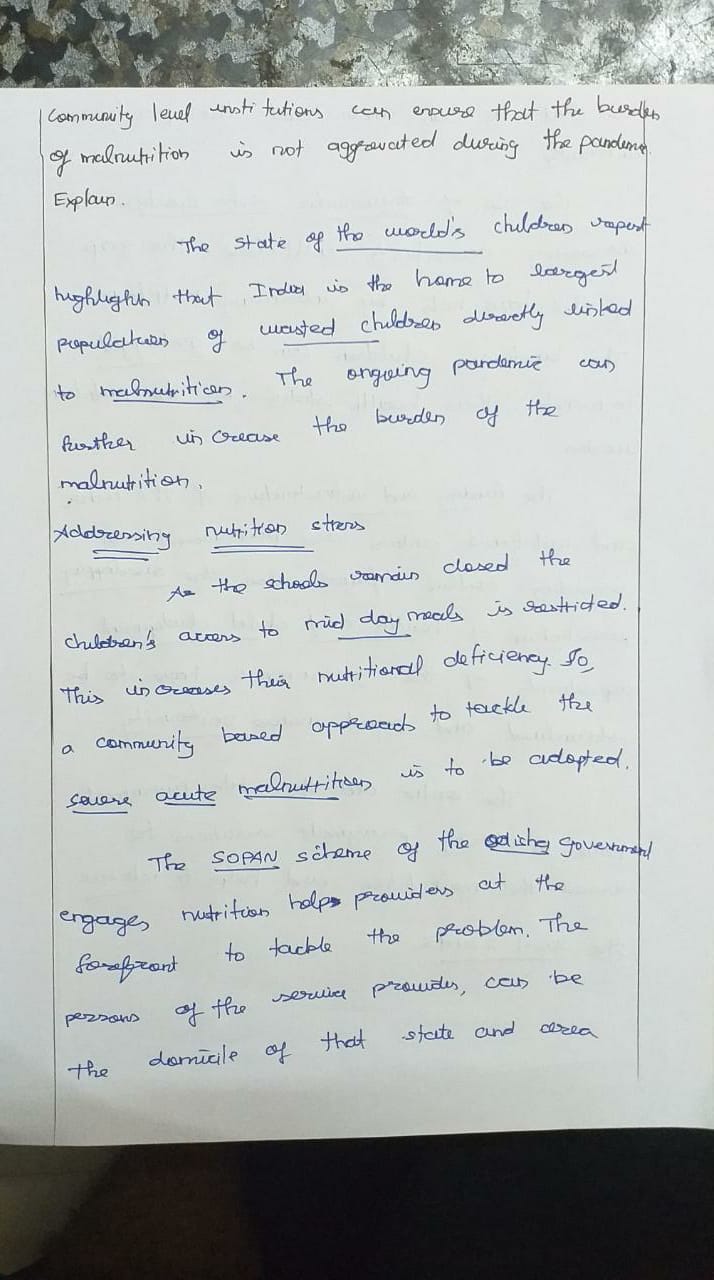 Community level institutions can ensure that the burden
of malnutrition is not aggravated during the pandemic.
Explain.
The state of the world's children report
highlights that India is the home to largest
population of wasted children directly linked
to malnutrition. The ongoing pandemic can
further increase the burden of the
malnutrition.
Addressing nutrition stress
As the schools remain closed the
children's access to mid day meals is restricted.
This increases their nutritional deficiency. So,
a community based approach to tackle the
severe acute malnutrition is to be adopted.
The SOPAN scheme of the odisha government
engages nutrition help providers at the
forefront to tackle the problem. The
persons of the service provides, can be
the domicile of that state and area